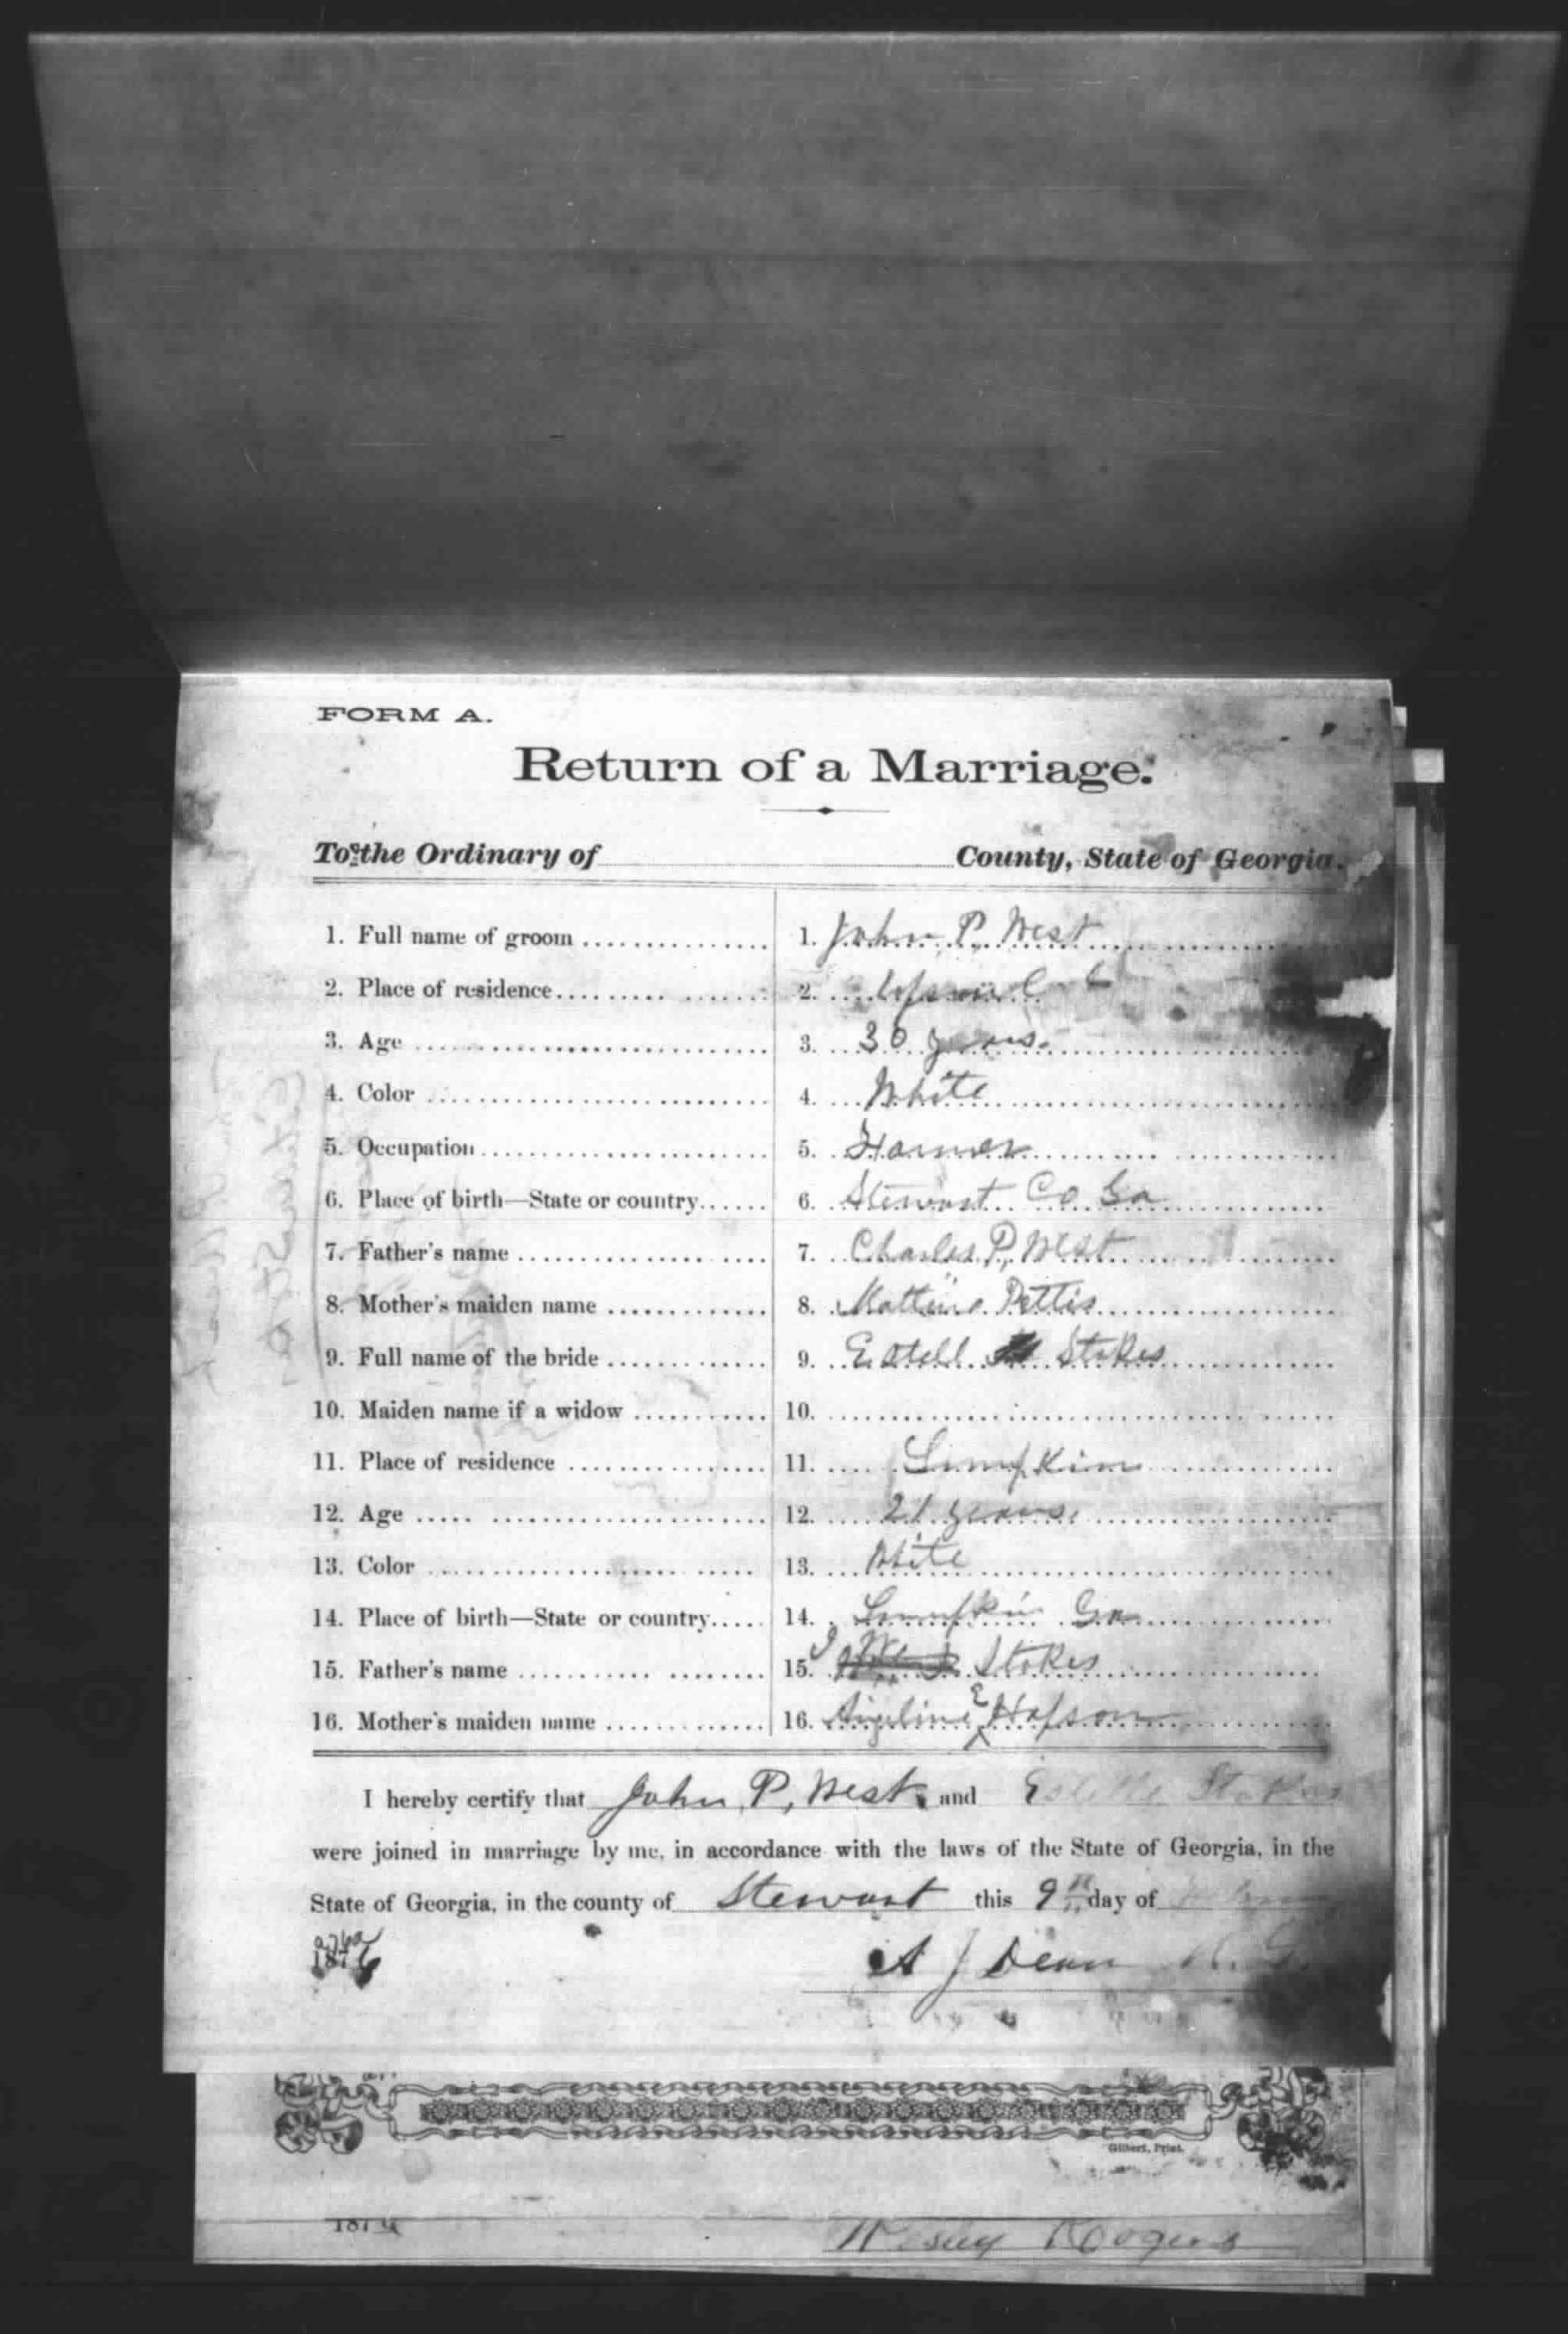 FORM A.
Return of a Marriage.
To the Ordinary of County, State of Georgia.
1. Full name of groom 1. John P. West
2. Place of residence 2.
3. Age 3. 30 years
4. Color 4. White
5. Occupation 5. Farmer
6. Place of birth—State or country 6. Stewart Co Ga
7. Father's name 7. Charles P, West
8. Mother's maiden name 8. Pettis
9. Full name of the bride 9. Estell Stokes
10. Maiden name if a widow 10.
11. Place of residence 11. Lumpkin
12. Age 12. 21 years.
13. Color 13. White
14. Place of birth—State or country 14. Lumpkin Ga
15. Father's name 15. Stokes
16. Mother's maiden name 16. E
I hereby certify that John P, West and Estelle Stokes
were joined in marriage by me, in accordance with the laws of the State of Georgia, in the
State of Georgia, in the county of Stewart this 9th day of
1876
A J Dean
Gilbert, Print.
187
Wesley Rogers